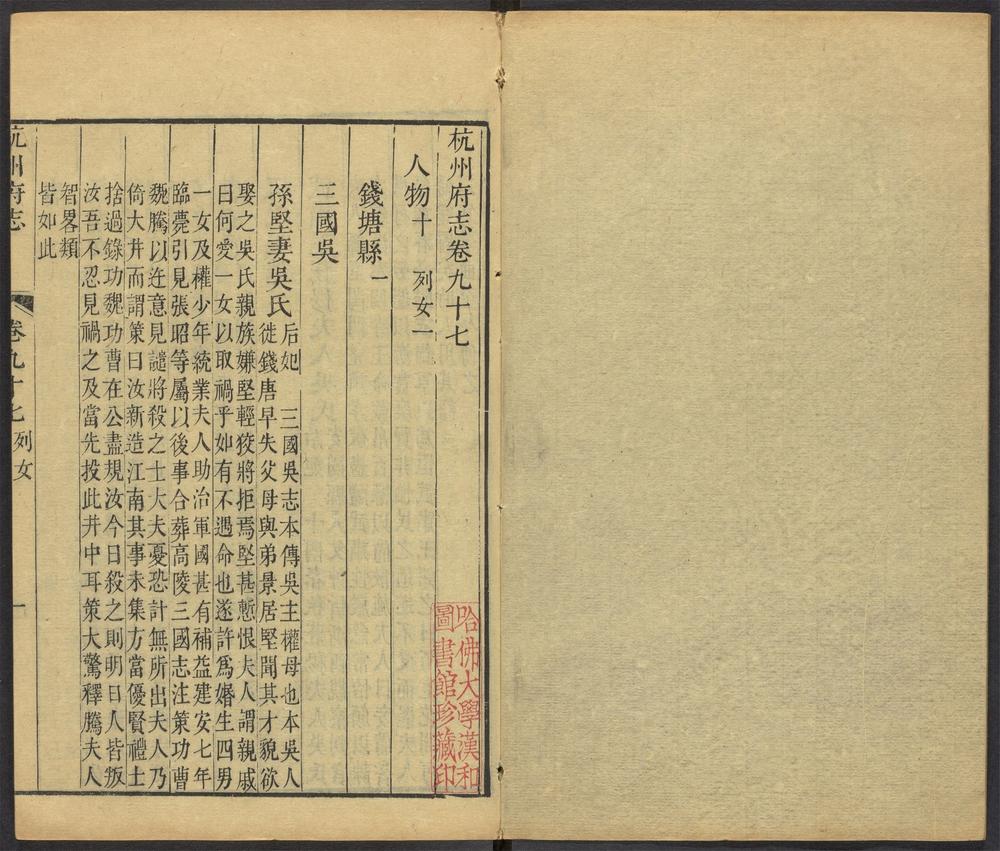 杭州府志卷九十七
人物十 列女一
錢塘縣一
三國吳
孫堅妻吳氏
后妃 三國吳志本傳吳主權母也本吳人
徙錢唐早失父母與弟景居堅聞其才貌欲
娶之吳氏親族嫌堅輕狡將拒焉堅甚慙恨夫人謂親戚
曰何愛一女以取禍乎如有不遇命也遂許爲婚生四男
一女及權少年統業夫人助治軍國甚有補益建安七年
臨薨引見張昭等屬以後事合葬高陵三國志注策功曹
魏騰以迕意見譴將殺之士大夫憂恐計無所出夫人乃
倚大井而謂策曰汝新造江南其事未集方當優賢禮士
捨過錄功魏功曹在公盡規汝今日殺之則明日人皆叛
汝吾不忍見禍之及當先投此井中耳策大驚釋騰夫人
智畧類
皆如此
杭州府志 卷九十七 列女 一
哈佛大學漢和
圖書館珍藏印